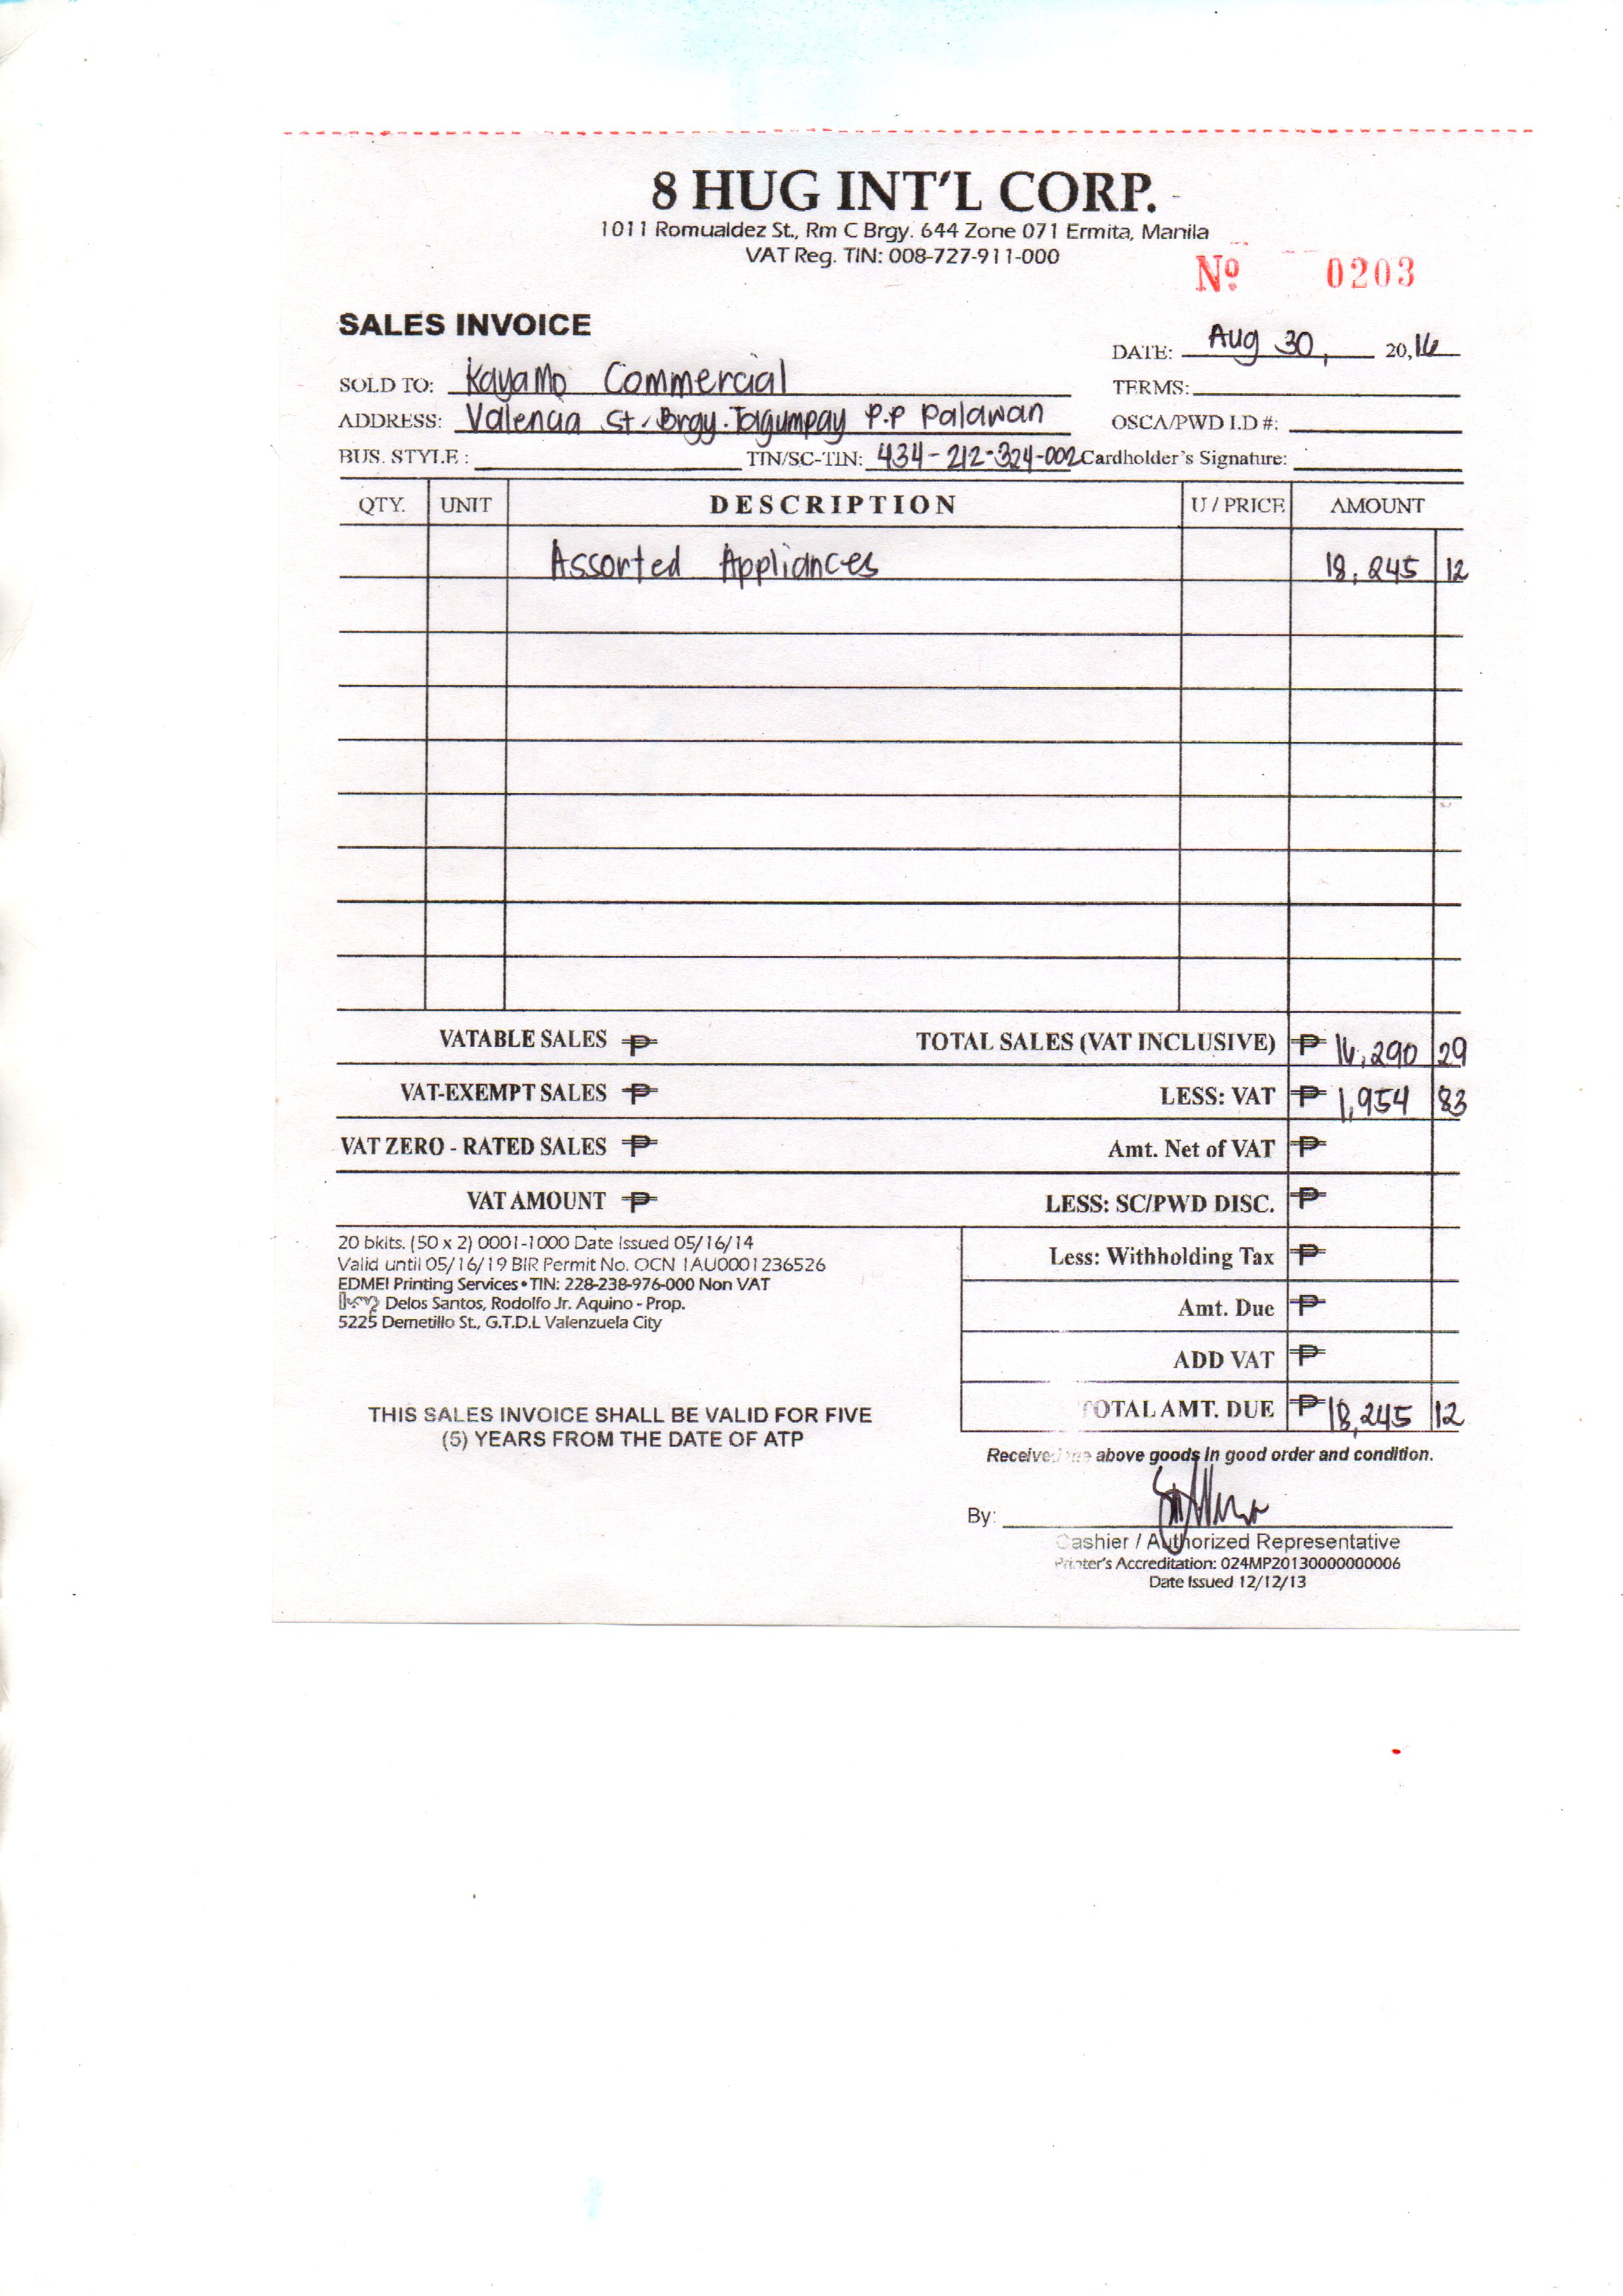 8 HUG INT'L CORP.
1011 Romualdez St., Rm C Brgy. 644 Zone 071 Ermita, Manila
VAT Reg. TIN: 008-727-911-000
Nº 0203
SALES INVOICE
DATE: Aug 30, 2016
SOLD TO: Kayamo Commercial TERMS:
ADDRESS: Valencia St. Brgy. Tagumpay P.P Palawan OSCA/PWD I.D #:
BUS. STYLE : TIN/SC-TIN: 434-212-324-002 Cardholder's Signature:
QTY. UNIT DESCRIPTION U / PRICE AMOUNT
Assorted Appliances 18,245 12
VATABLE SALES ₱ TOTAL SALES (VAT INCLUSIVE) ₱ 16,290 29
VAT-EXEMPT SALES ₱ LESS: VAT ₱ 1,954 83
VAT ZERO - RATED SALES ₱ Amt. Net of VAT ₱
VAT AMOUNT ₱ LESS: SC/PWD DISC. ₱
20 bkits. (50 x 2) 0001-1000 Date Issued 05/16/14
Valid until 05/16/19 BIR Permit No. OCN 1AU0001236526
EDMEI Printing Services • TIN: 228-238-976-000 Non VAT
Delos Santos, Rodolfo Jr. Aquino - Prop.
5225 Demetillo St., G.T.D.L Valenzuela City
Less: Withholding Tax ₱
Amt. Due ₱
ADD VAT ₱
TOTAL AMT. DUE ₱ 18,245 12
THIS SALES INVOICE SHALL BE VALID FOR FIVE
(5) YEARS FROM THE DATE OF ATP
Received the above goods in good order and condition.
By:
Cashier / Authorized Representative
Printer's Accreditation: 024MP20130000000006
Date Issued 12/12/13